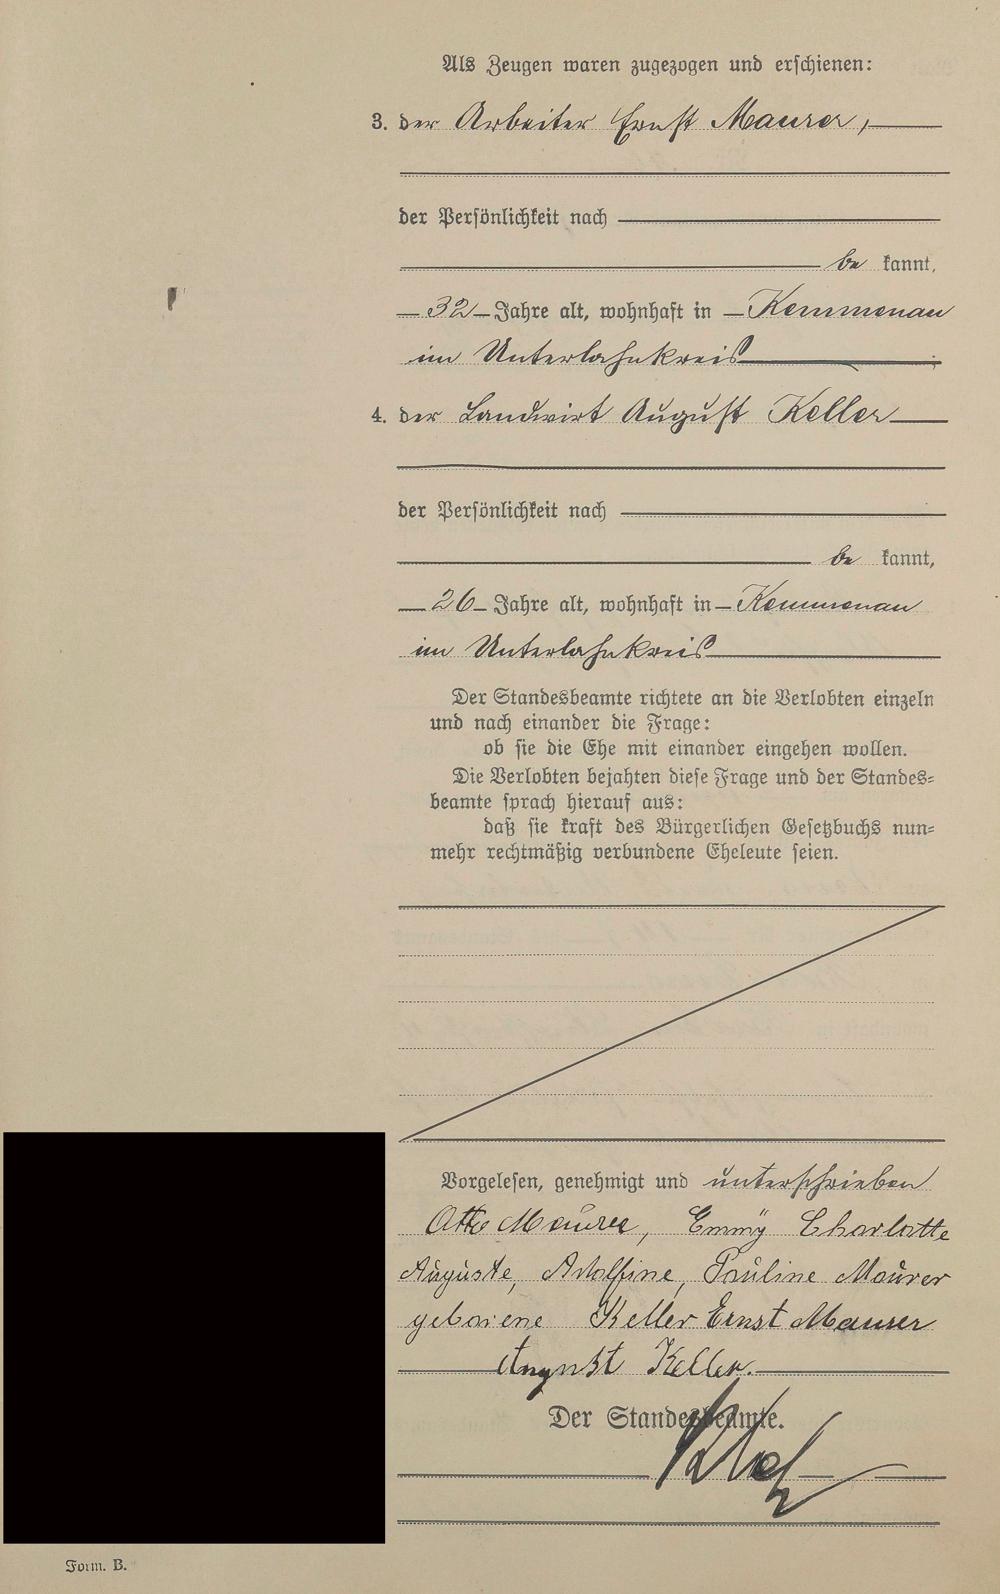 Als Zeugen waren zugezogen und erschienen:
3. der Arbeiter Ernst Maurer,
der Persönlichkeit nach
be kannt,
32 Jahre alt, wohnhaft in Kemmenau
im Unterlahnkreis
4. der Landwirt August Keller
der Persönlichkeit nach
be kannt,
26 Jahre alt, wohnhaft in Kemmenau
im Unterlahnkreis
Der Standesbeamte richtete an die Verlobten einzeln
und nach einander die Frage:
ob sie die Ehe mit einander eingehen wollen.
Die Verlobten bejahten diese Frage und der Standes=
beamte sprach hierauf aus:
daß sie kraft des Bürgerlichen Gesetzbuchs nun=
mehr rechtmäßig verbundene Eheleute seien.
Vorgelesen, genehmigt und unterschrieben
Otto Maurer, Emmy Charlotte
Auguste, Adolfine, Pauline Maurer
geborene Keller Ernst Maurer
August Keller.
Der Standesbeamte.
Form. B.